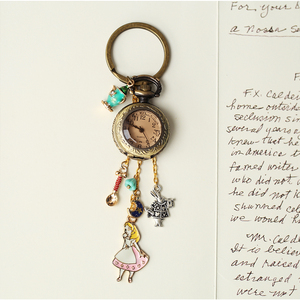 For your b
a Nossa Se
F
F.X. Calde
home outsid
seclusion sin
several years
know that he
in america t
famed writer
who did not
he did not k
shunned cal
we would h
Mr. Calde
It is believ
and raised
estranged
were not